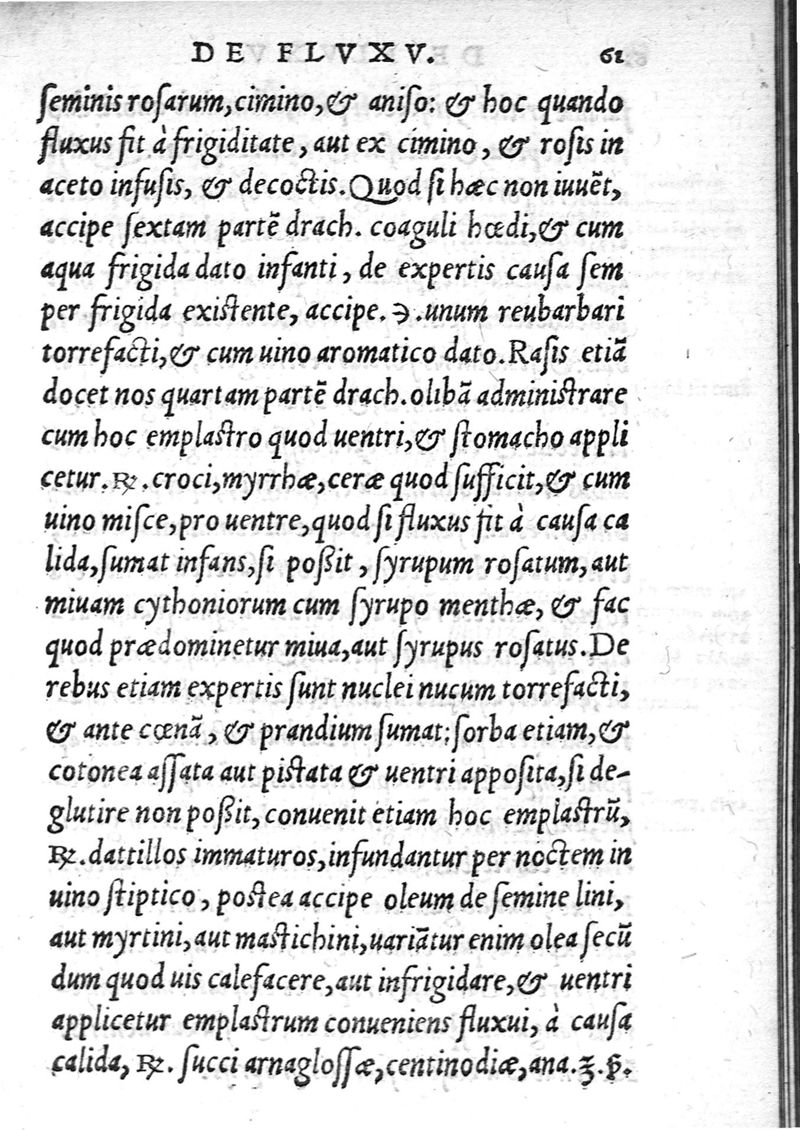 DE FLVXV. 61
ſeminis roſarum, cimino, & aniſo: & hoc quando
fluxus fit à frigiditate, aut ex cimino, & roſis in
aceto infuſis, & decoctis. Quod ſi hæc non iuuēt,
accipe ſextam partē drach. coaguli hœdi, & cum
aqua frigida dato infanti, de expertis cauſa ſem
per frigida exiſtente, accipe. ℈. unum reubarbari
torrefacti, & cum uino aromatico dato. Raſis etiā
docet nos quartam partē drach. olibā adminiſtrare
cum hoc emplaſtro quod uentri, & ſtomacho appli
cetur. ℞. croci, myrrhæ, ceræ quod ſufficit, & cum
uino miſce, pro uentre, quod ſi fluxus fit à cauſa ca
lida, ſumat infans, ſi poßit, ſyrupum roſatum, aut
miuam cythoniorum cum ſyrupo menthæ, & fac
quod prædominetur miua, aut ſyrupus roſatus. De
rebus etiam expertis ſunt nuclei nucum torrefacti,
& ante cœnā, & prandium ſumat: ſorba etiam, &
cotonea aſſata aut piſtata & uentri appoſita, ſi de-
glutire non poßit, conuenit etiam hoc emplaſtrū,
℞. dattillos immaturos, infundantur per noctem in
uino ſtiptico, poſtea accipe oleum de ſemine lini,
aut myrtini, aut maſtichini, uariātur enim olea ſecū
dum quod uis calefacere, aut infrigidare, & uentri
applicetur emplaſtrum conueniens fluxui, à cauſa
calida, ℞. ſucci arnagloſſæ, centinodiæ, ana. ʒ.